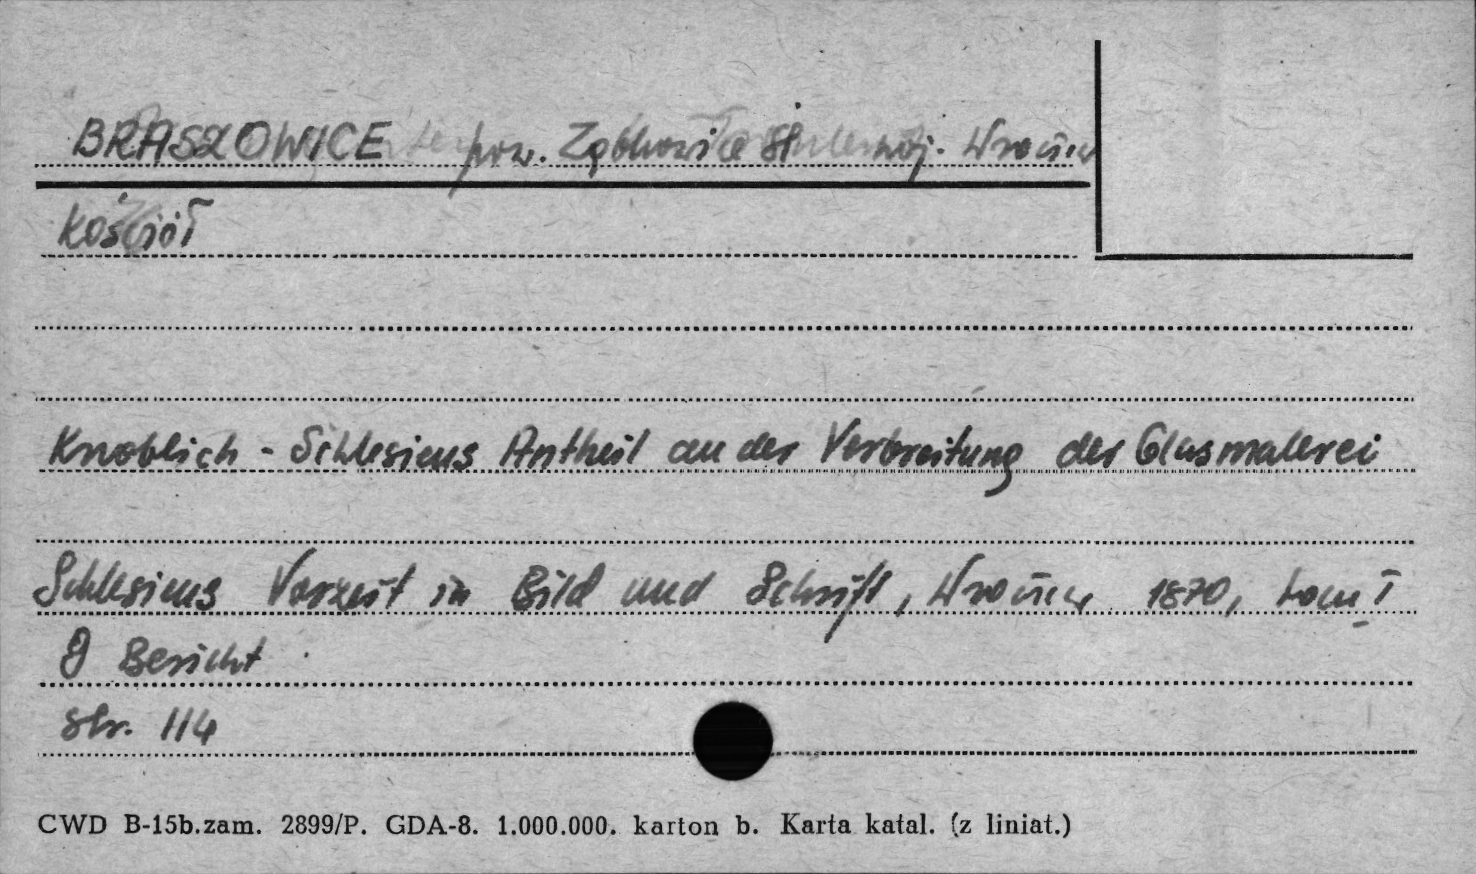 BRASZOWICE pow. Ząbkowice Śl. woj. Wrocław
Kościół
Knoblich - Schlesiens Antheil an der Verbreitung der Glasmalerei
Schlesiens Vorzeit in Bild und Schrift, Wrocław 1870, tom I
9 Bericht
str. 114
CWD B-15b.zam. 2899/P. GDA-8. 1.000.000. karton b. Karta katal. (z liniat.)